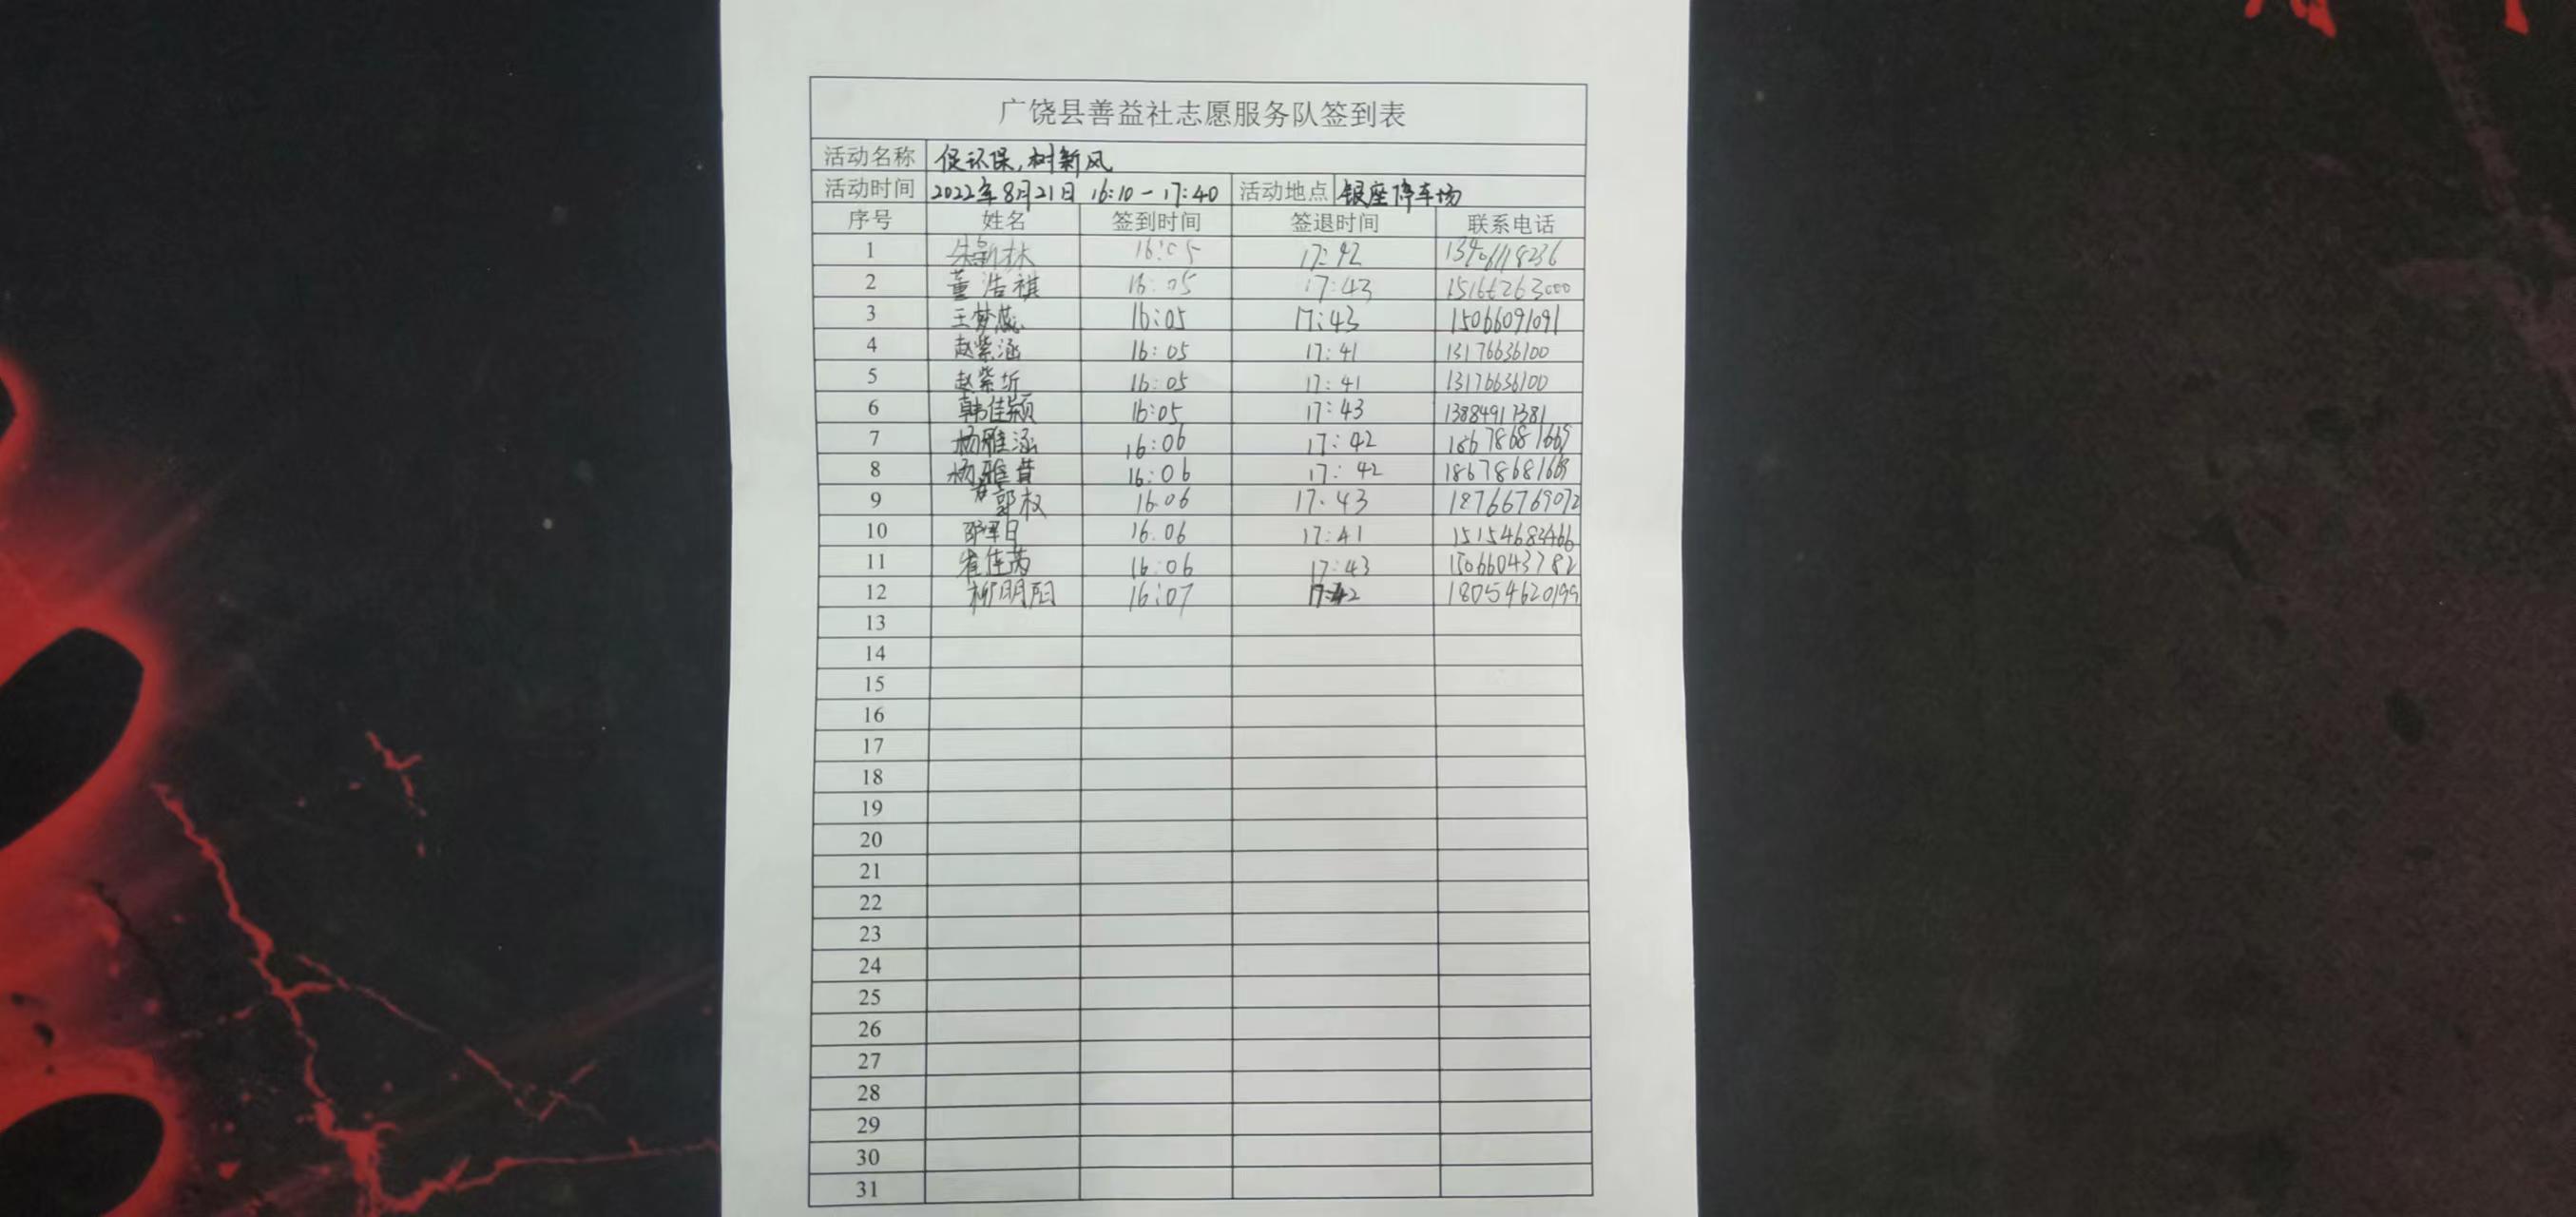 广饶县善益社志愿服务队签到表
活动名称 促环保,树新风
活动时间 2022年8月21日 16:10-17:40 活动地点 银座停车场
序号 姓名 签到时间 签退时间 联系电话
1 朱新林 16:05 17:42
2 董浩祺 16:05 17:43 15166263000
3 王梦 16:05 17:43 15066091091
4 赵紫涵 16:05 17:41 13176636100
5 赵紫圻 16:05 17:41 13176636100
6 韩佳颖 16:05 17:43 13884917381
7 杨雅涵 16:06 17:42 18678681669
8 杨雅 16:06 17:42 18678681669
9 郭权 16.06 17.43 18766769072
10 邵军日 16.06 17:41
11 崔佳芮 16:06 17:43 15066043782
12 柳明阳 16:07 17:42 18054620199
13
14
15
16
17
18
19
20
21
22
23
24
25
26
27
28
29
30
31